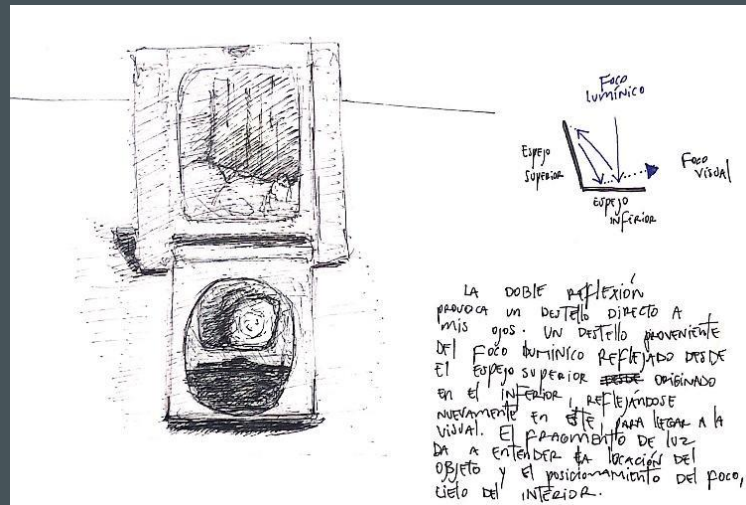 FOCO
LUMÍNICO
ESPEJO
SUPERIOR
FOCO
VISUAL
ESPEJO
INFERIOR
LA DOBLE REFLEXIÓN
PROVOCA UN DESTELLO DIRECTO A
MIS OJOS. UN DESTELLO PROVENIENTE
DEL FOCO LUMÍNICO REFLEJADO DESDE
EL ESPEJO SUPERIOR DESDE ORIGINADO
EN EL INFERIOR, REFLEJÁNDOSE
NUEVAMENTE EN ESTE PARA LLEGAR A LA
VISUAL. EL FRAGMENTO DE LUZ
DA A ENTENDER LA LOCACIÓN DEL
OBJETO Y EL POSICIONAMIENTO DEL FOCO,
CIELO DEL INTERIOR.